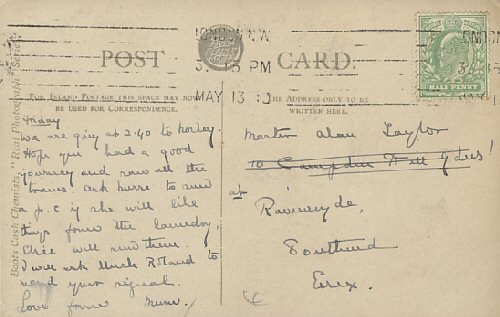 POST CARD.
LONDON. N.W
3. 15 PM
MAY 13 10
HALF PENNY
FOR INLAND POSTAGE THIS SPACE MAY NOW BE USED FOR CORRESPONDENCE.
THE ADDRESS ONLY TO BE WRITTEN HERE.
Boots Cash Chemists "Real Photograph" Series
Friday
we are going at 2.40 to Horley.
Hope you had a good
journey and saw all the
trains. Ask nurse to send
a p.c if she will like
things from the laundry.
Elsie will send them.
I will ask Uncle Roland to
mend your signal.
Love from Mum.
Master Alan Taylor
10 Campden Hill Gdns!
at
Southend
Essex.